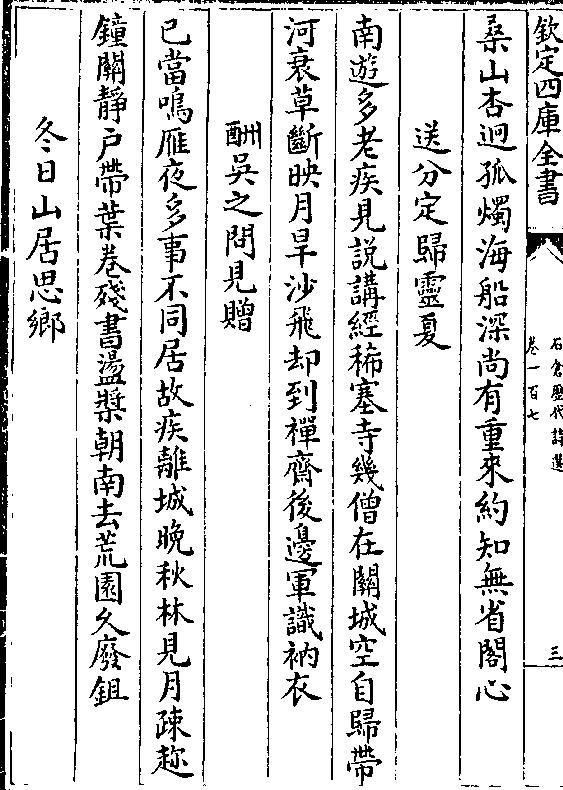 欽定四庫全書
石倉歷代詩選
卷一百七
三
桑山杏迥孤燭海船深尚有重來約知無省閣心
送分定歸靈夏
南遊多老疾見說講經稀塞寺幾僧在關城空自歸帶
河衰草斷映月旱沙飛却到禪齋後邊軍識衲衣
酬吳之問見贈
已當鳴雁夜多事不同居故疾離城晚秋林見月疎趂
鐘關靜戶帶葉卷殘書盪槳朝南去荒園久廢鉏
冬日山居思鄉